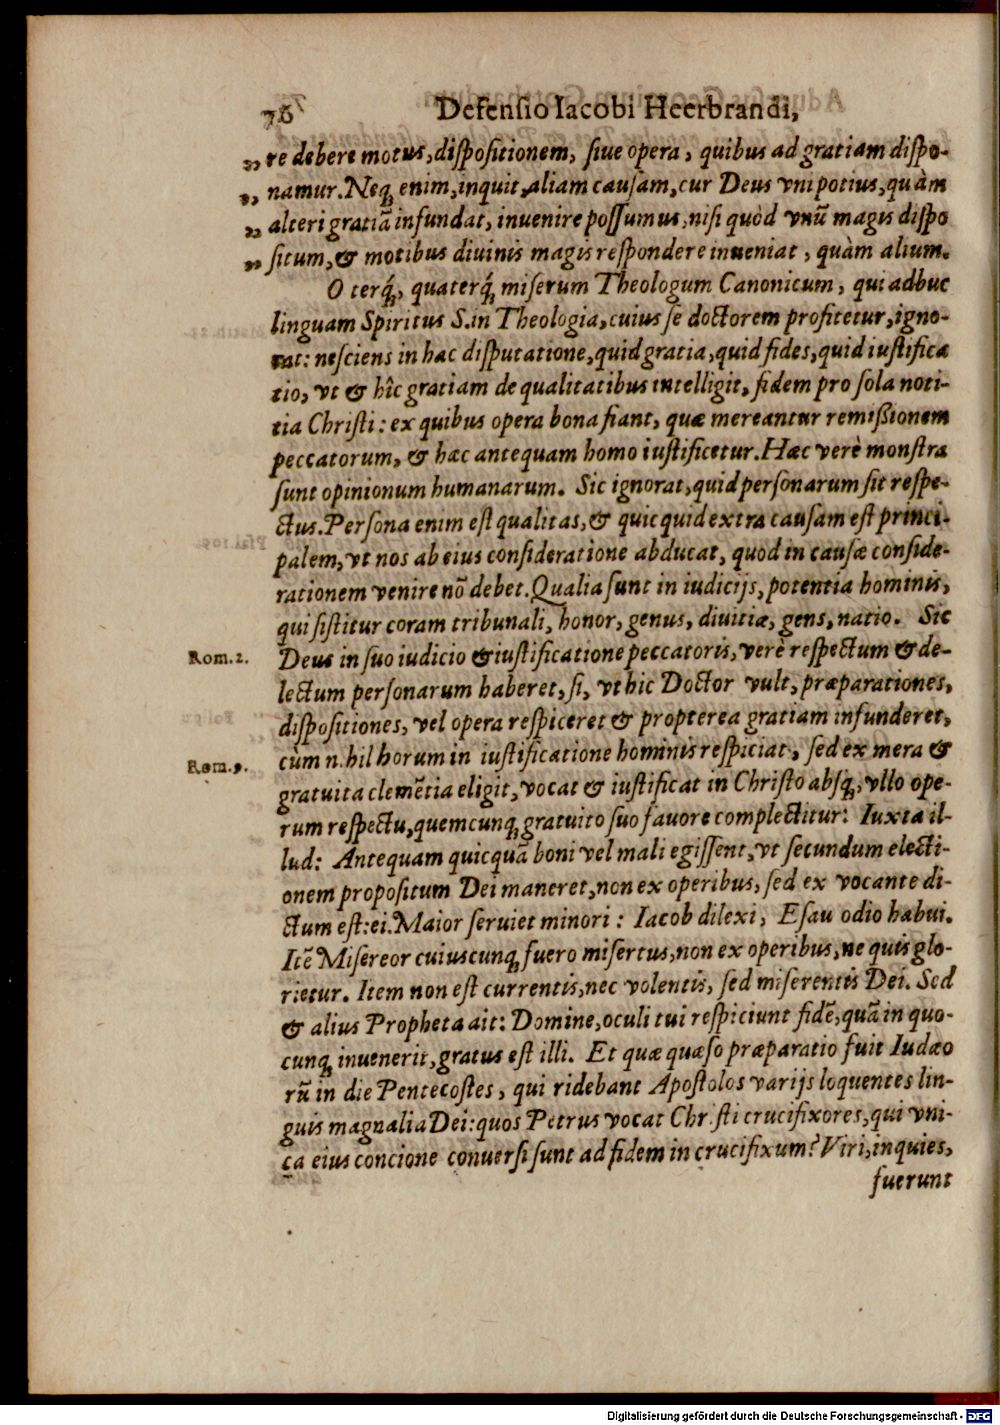 76 Defensio Iacobi Heerbrandi,
„ re debere motus, dispositionem, siue opera, quibus ad gratiam dispo-
„ namur. Neq; enim, inquit, aliam causam, cur Deus vni potius, quàm
„ alteri gratiã infundat, inuenire possumus, nisi quòd vnũ magis dispo
„ situm, & motibus diuinis magis respondere inueniat, quàm alium.
O terq́;, quaterq́; miserum Theologum Canonicum, qui adhuc
linguam Spiritus S. in Theologia, cuius se doctorem profitetur, igno-
rat: nesciens in hac disputatione, quid gratia, quid fides, quid iustifica
tio, vt & hîc gratiam de qualitatibus intelligit, fidem pro sola noti-
tia Christi: ex quibus opera bona fiant, quæ mereantur remißionem
peccatorum, & hæc antequam homo iustificetur. Hæc verè monstra
sunt opinionum humanarum. Sic ignorat, quid personarum sit respe-
ctus. Persona enim est qualitas, & quicquid extra causam est princi-
palem, vt nos ab eius consideratione abducat, quod in causæ conside-
rationem venire nõ debet. Qualia sunt in iudicijs, potentia hominis,
qui sistitur coram tribunali, honor, genus, diuitiæ, gens, natio. Sic
Rom. 2. Deus in suo iudicio & iustificatione peccatoris, verè respectum & de-
lectum personarum haberet, si, vt hic Doctor vult, præparationes,
dispositiones, vel opera respiceret & propterea gratiam infunderet,
cùm nihil horum in iustificatione hominis respiciat, sed ex mera &
Rom. 9. gratuita clemẽtia eligit, vocat & iustificat in Christo absq; vllo ope-
rum respectu, quemcunq; gratuito suo fauore complectitur: Iuxta il-
lud: Antequam quicquã boni vel mali egissent, vt secundum electi-
onem propositum Dei maneret, non ex operibus, sed ex vocante di-
ctum est: ei. Maior seruiet minori: Iacob dilexi, Esau odio habui.
Itẽ Misereor cuiuscunq; fuero misertus, non ex operibus, ne quis glo-
rietur. Item non est currentis, nec volentis, sed miserentis Dei. Sed
& alius Propheta ait: Domine, oculi tui respiciunt fidẽ, quã in quo-
cunq; inuenerit, gratus est illi. Et quæ quæso præparatio fuit Iudæo
rũ in die Pentecostes, qui ridebant Apostolos varijs loquentes lin-
guis magnalia Dei: quos Petrus vocat Christi crucifixores, qui vni-
ca eius concione conuersi sunt ad fidem in crucifixum? Viri, inquies,
fuerunt
Digitalisierung gefördert durch die Deutsche Forschungsgemeinschaft - DFG